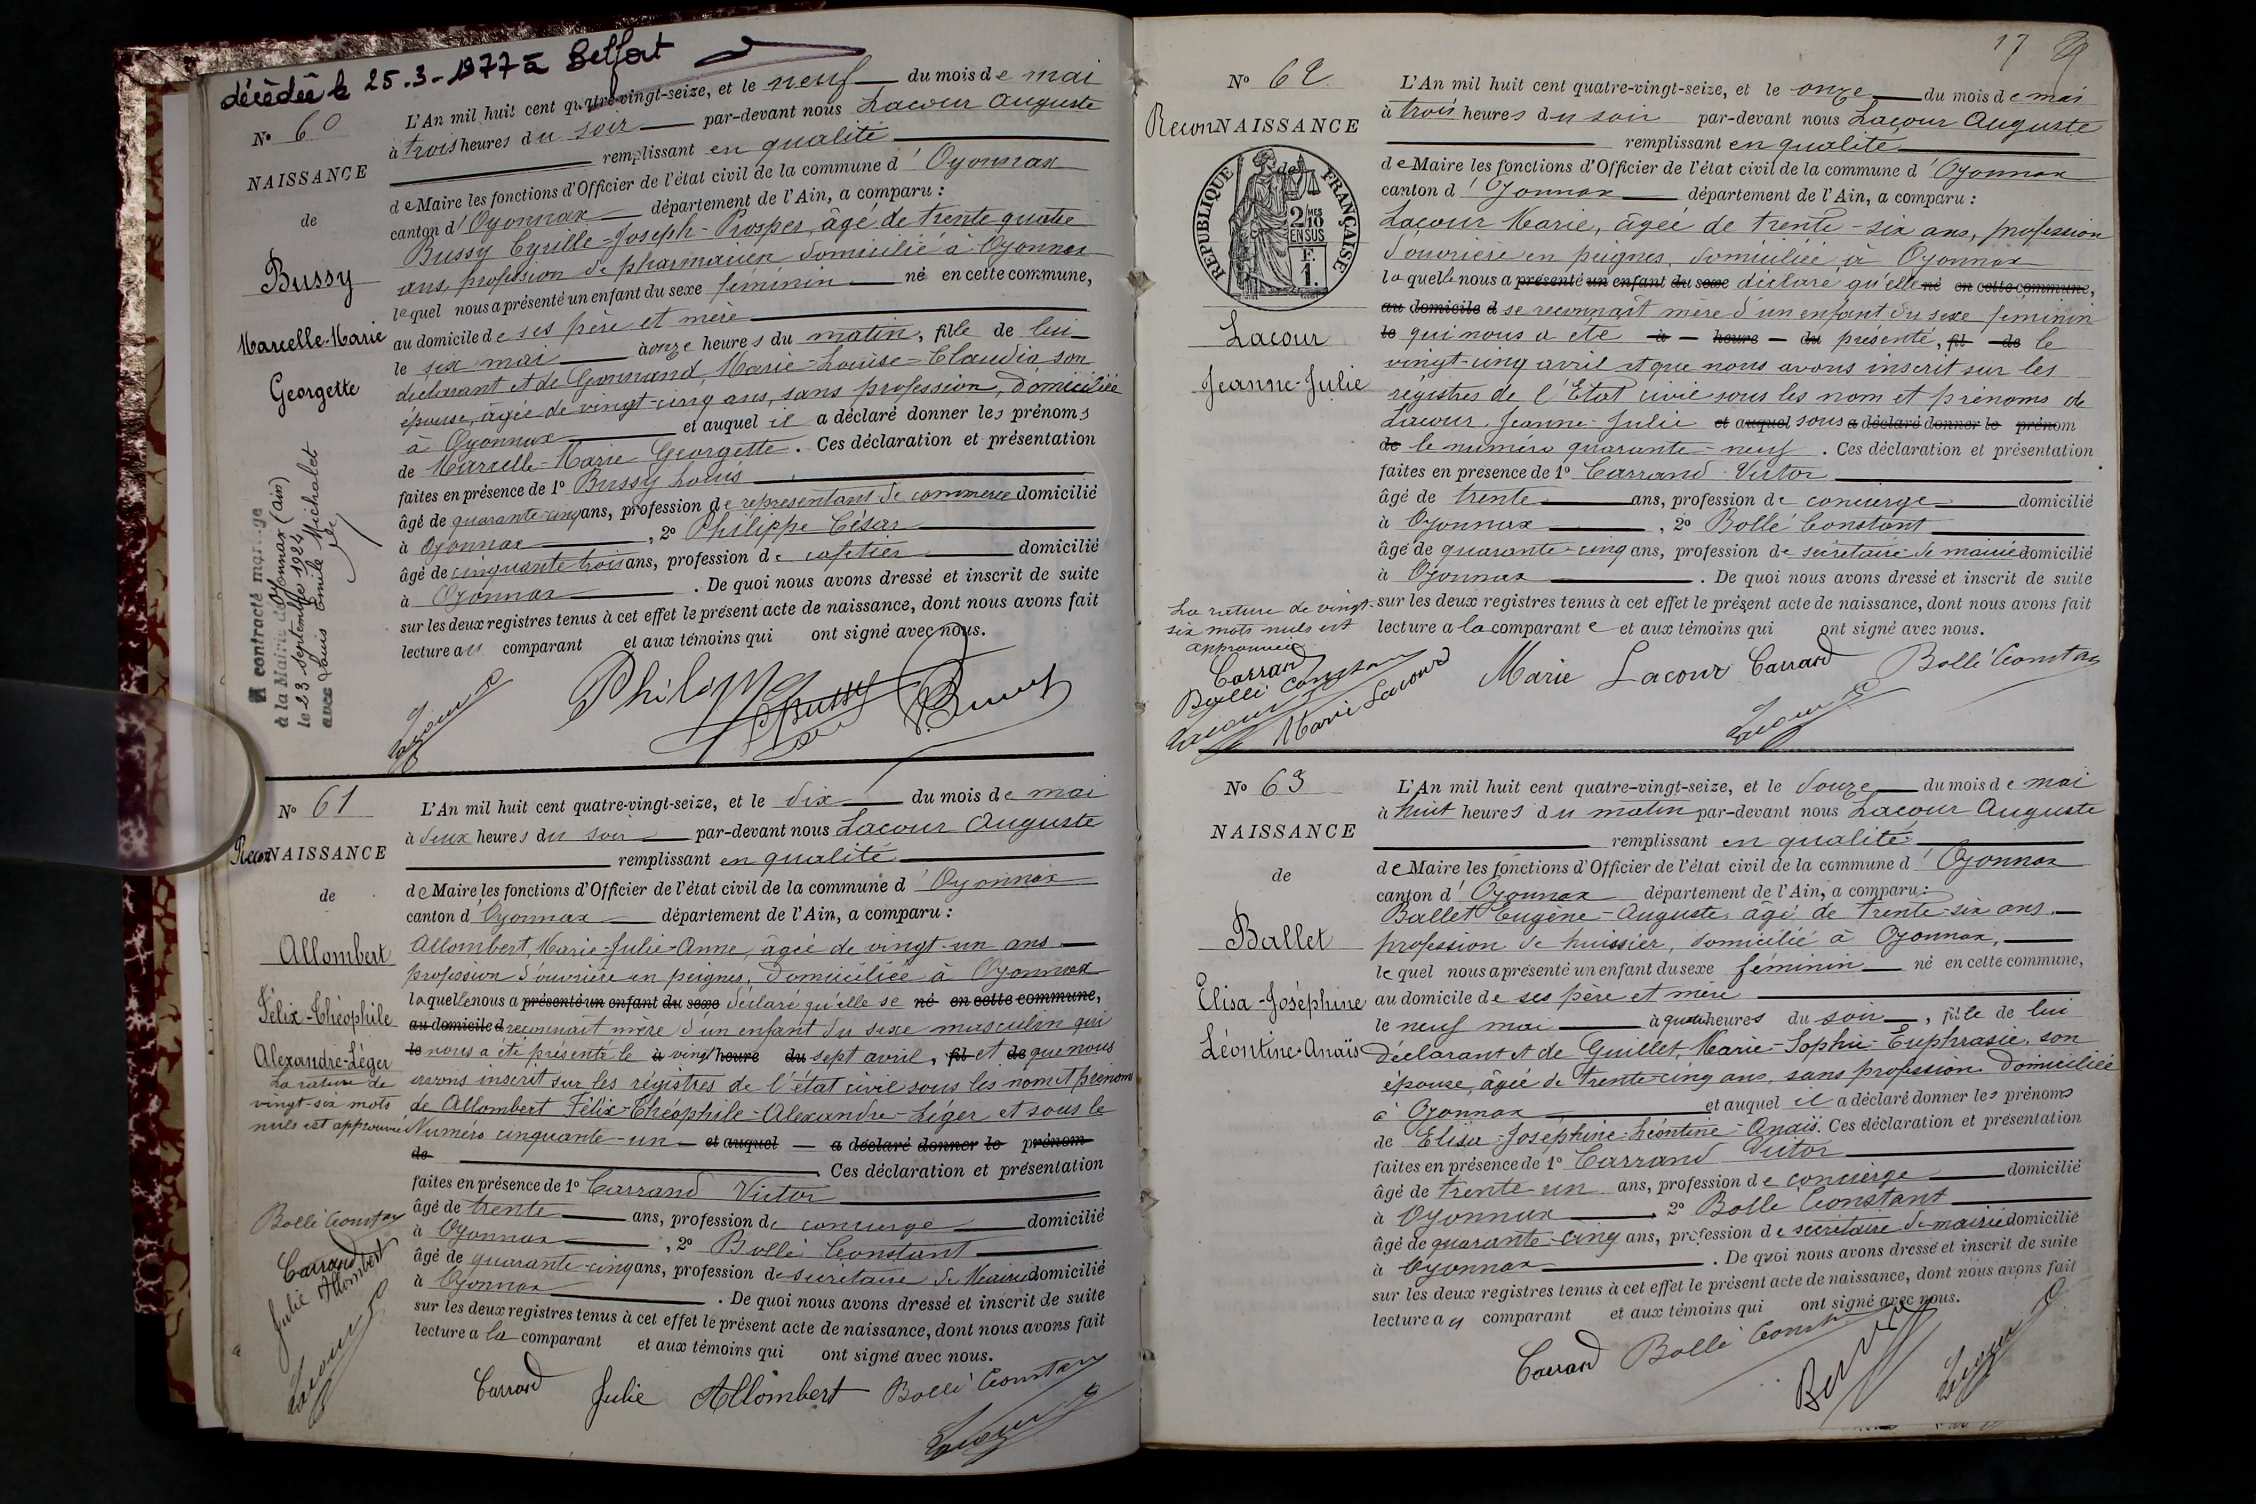 décédée le 25.3-1977 à Belfort
N° 60
NAISSANCE
de
Bussy
Marcelle-Marie
Georgette
A contracté mariage
à la Mairie d'Oyonnax (ain)
le 23 septembre 1924
avec Louis Emile Michalet
L'An mil huit cent quatre-vingt-seize, et le neuf du mois de mai
à trois heures du soir par-devant nous Lacour Auguste
remplissant en qualité
de Maire les fonctions d'Officier de l'état civil de la commune d'Oyonnax
canton d'Oyonnax département de l'Ain, a comparu :
Bussy Cyrille-Joseph-Prosper, âgé de trente quatre
ans, profession de pharmacien domicilié à Oyonnax
lequel nous a présenté un enfant du sexe féminin né en cette commune,
au domicile de ses père et mère
le six mai à onze heures du matin, fille de lui
déclarant et de Gonnand, Marie-Louise-Claudia son
épouse, âgée de vingt-cinq ans, sans profession, domiciliée
à Oyonnax et auquel il a déclaré donner les prénoms
de Marcelle-Marie Georgette. Ces déclaration et présentation
faites en présence de 1° Bussy Louis
âgé de quarante-cinq ans, profession de représentant de commerce domicilié
à Oyonnax, 2° Philippe César
âgé de cinquante trois ans, profession de cafetier domicilié
à Oyonnax. De quoi nous avons dressé et inscrit de suite
sur les deux registres tenus à cet effet le présent acte de naissance, dont nous avons fait
lecture au comparant et aux témoins qui ont signé avec nous.
Lacour Philippe Bussy
N° 61
ReconNAISSANCE
de
Allombert
Félix-Théophile
Alexandre-Léger
La rature de
vingt-six mots
nuls est approuvée
Bollé Constant
Carrand
Julie Allombert
Lacour
L'An mil huit cent quatre-vingt-seize, et le dix du mois de mai
à deux heures du soir par-devant nous Lacour Auguste
remplissant en qualité
de Maire les fonctions d'Officier de l'état civil de la commune d'Oyonnax
canton d'Oyonnax département de l'Ain, a comparu :
Allombert, Marie-Julie-Anne, âgée de vingt-un ans
profession d'ouvrière en peignes, domiciliée à Oyonnax
laquelle nous a présenté un enfant du sexe déclaré qu'elle se né en cette commune,
au domicile d reconnait mère d'un enfant du sexe masculin qui
le nous a été présenté le à vingt heure du sept avril, fil et de que nous
avons inscrit sur les régistres de l'état civil sous les nom et prénom
de Allombert Félix-Théophile-Alexandre-Léger et sous le
Numéro cinquante-un et auquel a déclaré donner le prénom
de Ces déclaration et présentation
faites en présence de 1° Carrand Victor
âgé de trente ans, profession de concierge domicilié
à Oyonnax, 2° Bollé Constant
âgé de quarante-cinq ans, profession de secrétaire de Mairie domicilié
à Oyonnax. De quoi nous avons dressé et inscrit de suite
sur les deux registres tenus à cet effet le présent acte de naissance, dont nous avons fait
lecture a la comparant et aux témoins qui ont signé avec nous.
Carrand Julie Allombert Bollé Constant
Lacour
17
N° 62
ReconNAISSANCE
de
REPUBLIQUE FRANÇAISE
2/10 MES
EN SUS
F.
1.
Lacour
Jeanne-Julie
La rature de vingt-
six mots nuls est
approuvée
Carrand
Bollé Constant
Lacour
Marie Lacour
L'An mil huit cent quatre-vingt-seize, et le onze du mois de mai
à trois heures du soir par-devant nous Lacour Auguste
remplissant en qualité
de Maire les fonctions d'Officier de l'état civil de la commune d'Oyonnax
canton d'Oyonnax département de l'Ain, a comparu :
Lacour Marie, âgée de trente-six ans, profession
d'ouvrière en peignes, domiciliée à Oyonnax
laquelle nous a présenté un enfant du sexe déclaré qu'elle né en cette commune,
au domicile d se reconnait mère d'un enfant du sexe féminin
le qui nous a été à heure du présenté, fil de le
vingt-cinq avril et que nous avons inscrit sur les
régistres de l'Etat civil sous les nom et prénoms de
Lacour Jeanne-Julie et auquel sous a déclaré donner le prénom
de le numéro quarante-neuf. Ces déclaration et présentation
faites en présence de 1° Carrand Victor
âgé de trente ans, profession de concierge domicilié
à Oyonnax, 2° Bollé Constant
âgé de quarante-cinq ans, profession de secrétaire de mairie domicilié
à Oyonnax. De quoi nous avons dressé et inscrit de suite
sur les deux registres tenus à cet effet le présent acte de naissance, dont nous avons fait
lecture a la comparante et aux témoins qui ont signé avec nous.
Marie Lacour Carrand Bollé Constant
Lacour
N° 63
NAISSANCE
de
Ballet
Élisa-Joséphine
Léontine-Anaïs
L'An mil huit cent quatre-vingt-seize, et le douze du mois de mai
à huit heures du matin par-devant nous Lacour Auguste
remplissant en qualité
de Maire les fonctions d'Officier de l'état civil de la commune d'Oyonnax
canton d'Oyonnax département de l'Ain, a comparu :
Ballet Eugène-Auguste, âgé de trente-six ans
profession de huissier, domicilié à Oyonnax,
lequel nous a présenté un enfant du sexe féminin né en cette commune,
au domicile de ses père et mère
le neuf mai à quatre heures du soir, fille de lui
déclarant et de Guillet, Marie-Sophie-Euphrasie, son
épouse, âgée de trente-cinq ans, sans profession domiciliée
à Oyonnax et auquel il a déclaré donner les prénoms
de Elisa-Joséphine-Léontine-Anaïs. Ces déclaration et présentation
faites en présence de 1° Carrand Victor
âgé de trente un ans, profession de concierge domicilié
à Oyonnax 2° Bollé Constant
âgé de quarante-cinq ans, profession de secrétaire de mairie domicilié
à Oyonnax. De quoi nous avons dressé et inscrit de suite
sur les deux registres tenus à cet effet le présent acte de naissance, dont nous avons fait
lecture au comparant et aux témoins qui ont signé avec nous.
Carrand Bollé Constant Lacour